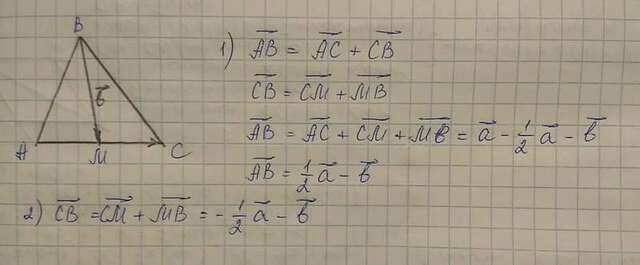 B
1) \overline{AB} = \overline{AC} + \overline{CB}
\overline{CB} = \overline{CM} + \overline{MB}
\overline{b}
\overline{AB} = \overline{AC} + \overline{CM} + \overline{MB} = \overline{a} - \frac{1}{2}\overline{a} - \overline{b}
A M C
\overline{AB} = \frac{1}{2}\overline{a} - \overline{b}
2) \overline{CB} = \overline{CM} + \overline{MB} = -\frac{1}{2}\overline{a} - \overline{b}